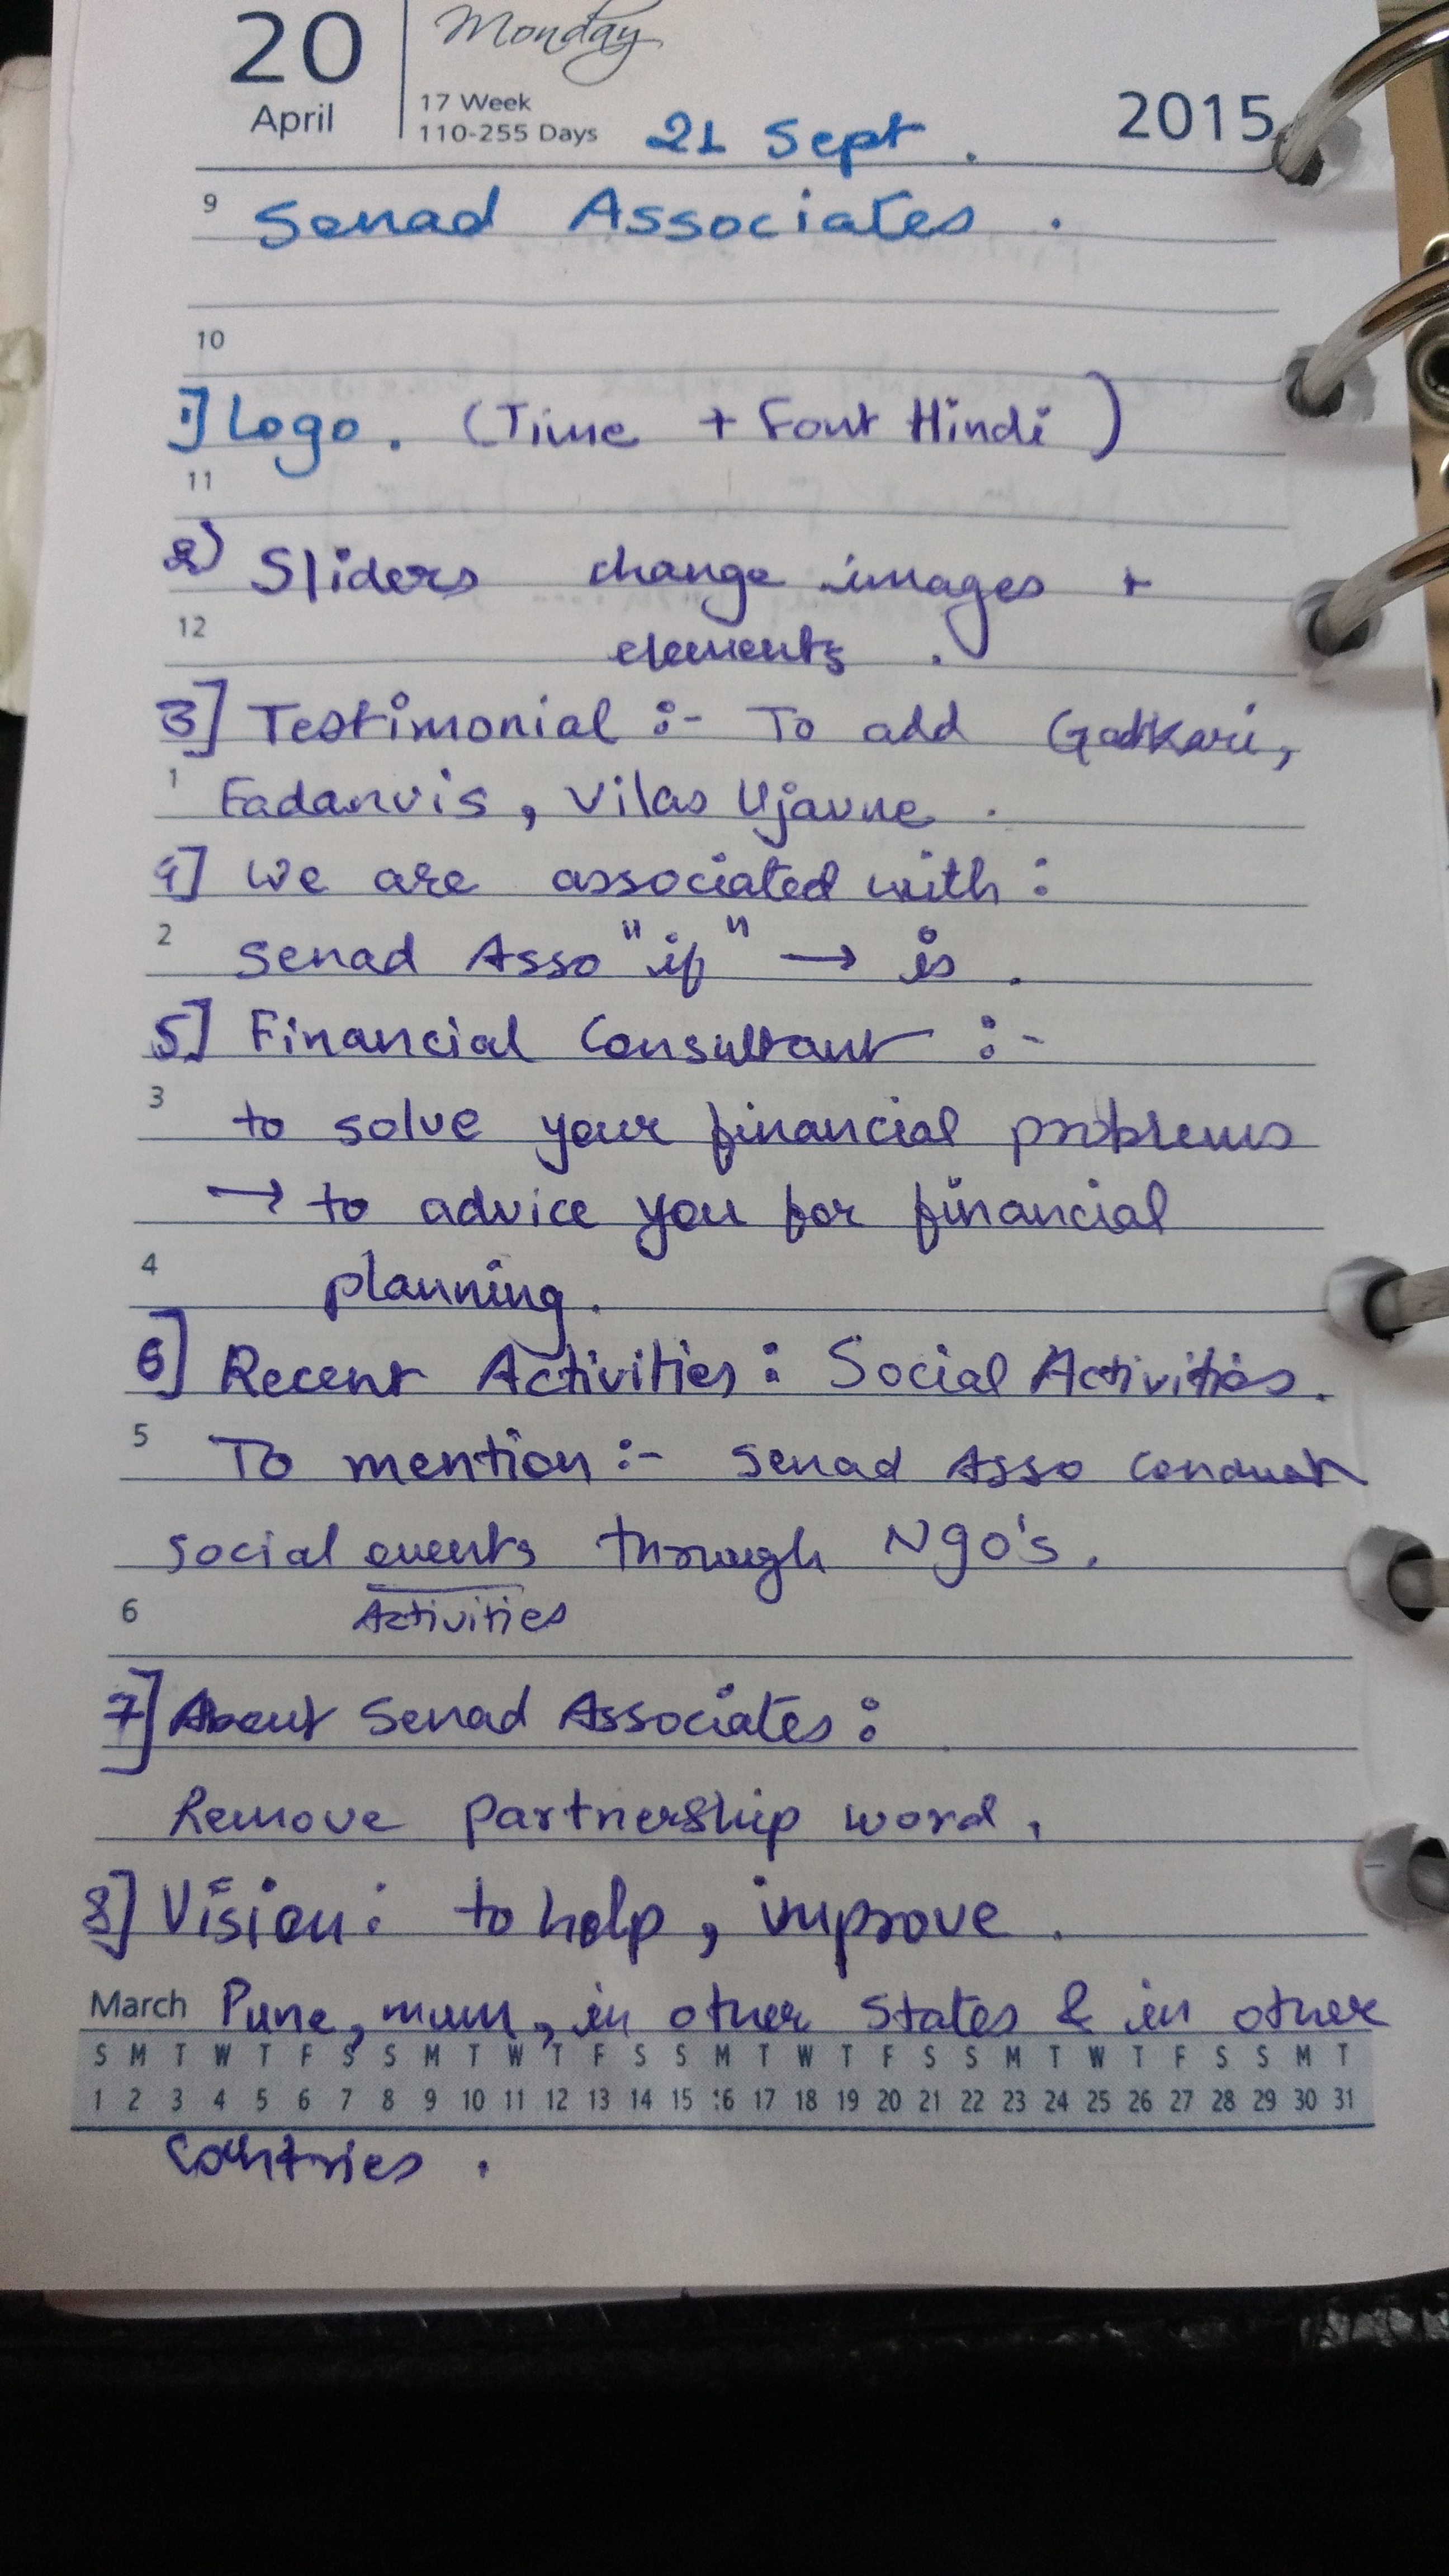 20 Monday
April 17 Week
110-255 Days 21 Sept. 2015
9 Senad Associates.
10
1] Logo. (Time + Font Hindi)
11
2) Sliders change images +
12 elements.
3] Testimonial :- To add Gadkari,
1 Fadanvis, Vilas Ujavne.
4] We are associated with :
2 Senad Asso "if" → is.
5] Financial Consultant :-
3 to solve your financial problems
→ to advice you for financial
4 planning.
6] Recent Activities : Social Activities.
5 To mention :- Senad Asso conduct
social events through Ngo's.
6 Activities
7] About Senad Associates :
Remove partnership word.
8] Vision : to help, improve.
March Pune, mum, in other states & in other
S M T W T F S S M T W T F S S M T W T F S S M T W T F S S M T
1 2 3 4 5 6 7 8 9 10 11 12 13 14 15 16 17 18 19 20 21 22 23 24 25 26 27 28 29 30 31
Countries.